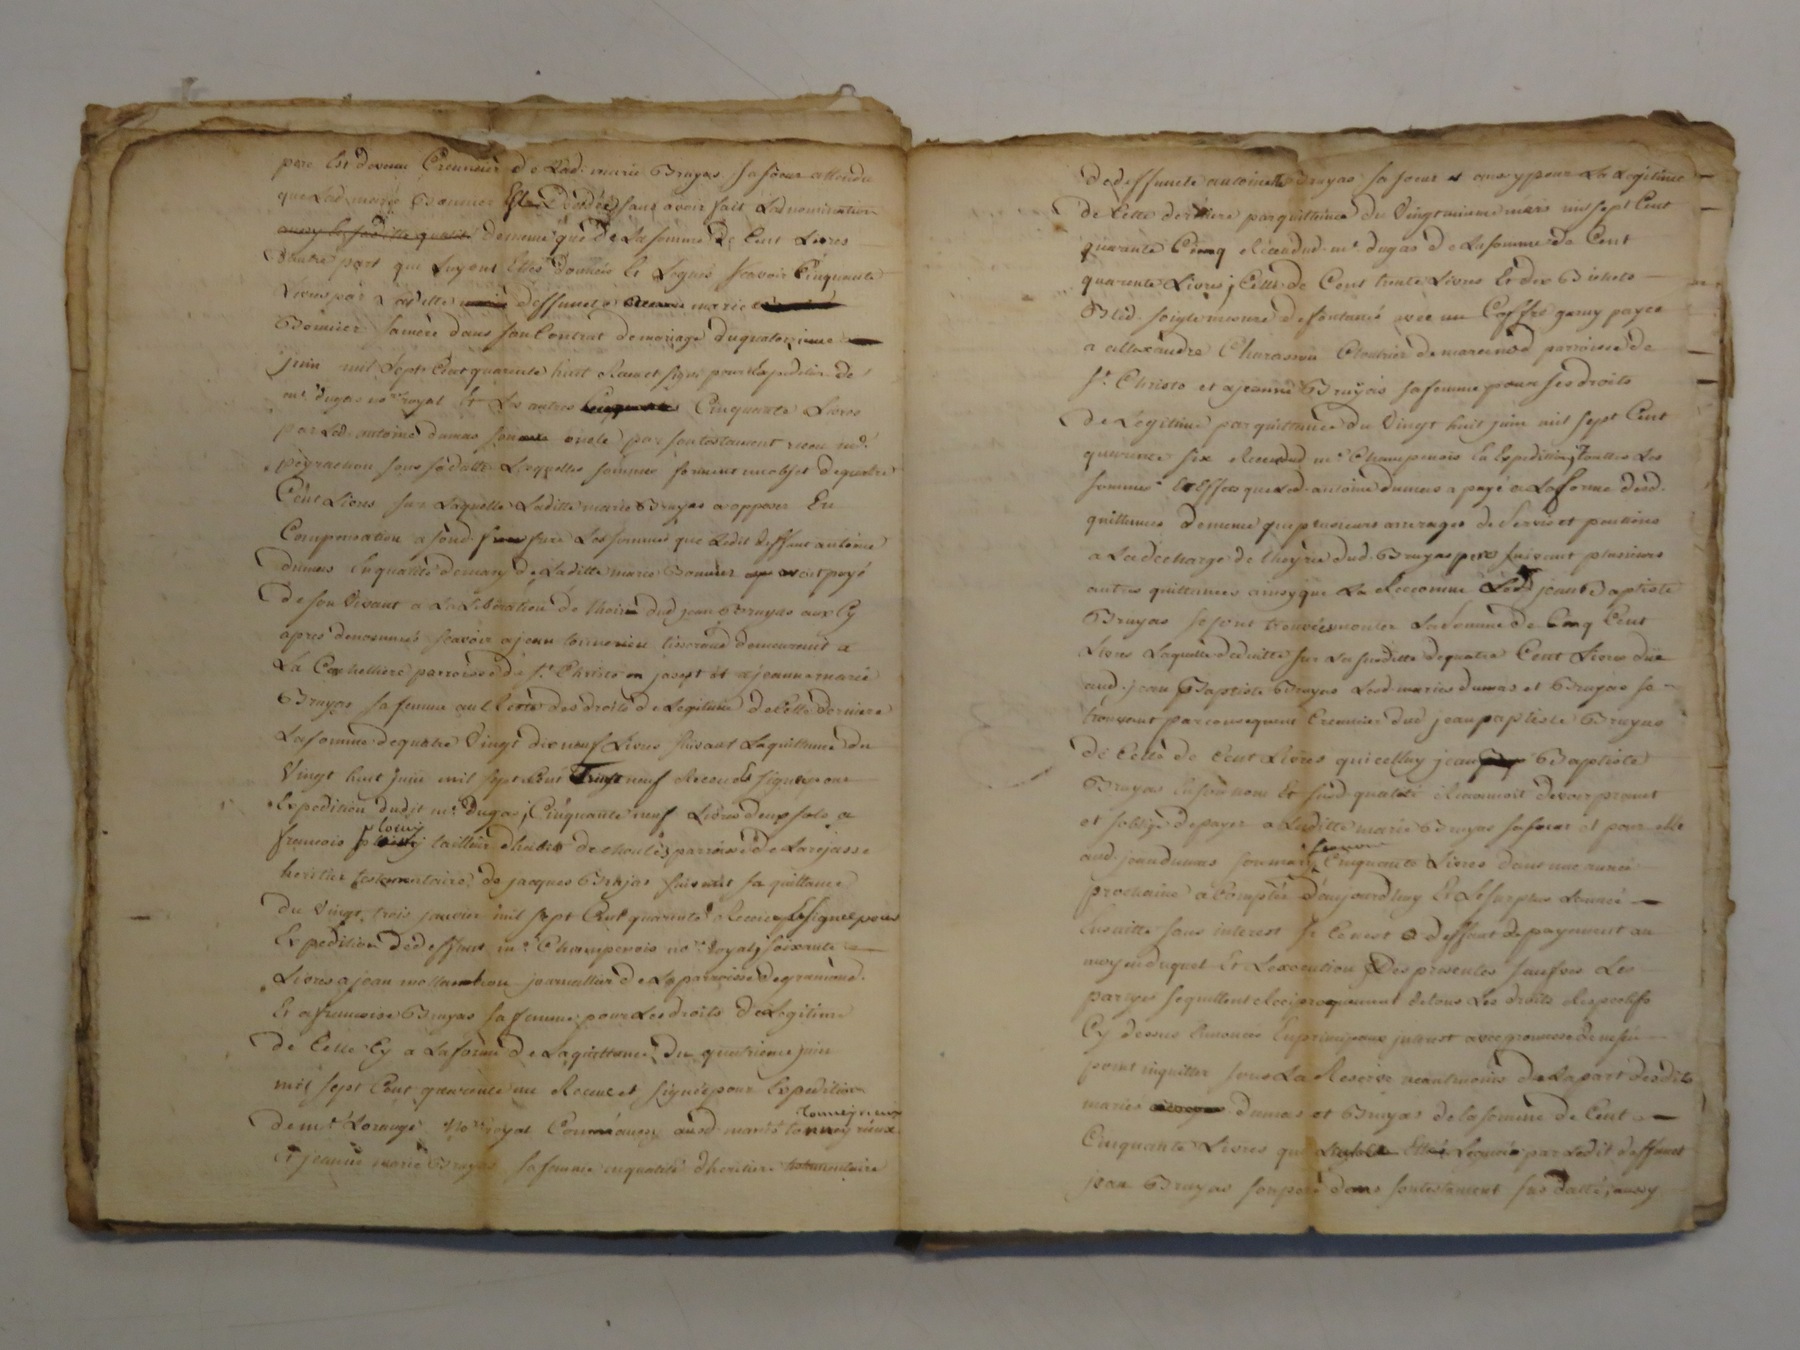 pere Est devenu Creancier de Lad. marie Bruyas sa soeur attendu
que Lad. marie Bonnier Est Decedée sans avoir fait Lad. nomination
de meme que de La somme de Cent Livres
d'autre part que luy ont Etés données et Leguès scavoir Cinquante
Livres par Laditte deffuncte marie
Bonnier sa mere dans son Contrat de mariage du quatorzieme
juin mil sept Cent quarante huit Receu et signé pour Expedition de
me. dugas no.re royal Et Les autres Cinquante Livres
par Led. antoine dumas son oncle par son testament receu me.
peyrachon sous sa datte Lesquelles sommes forment un objet de quatre
Cent Livres sur Laquelle Laditte marie Bruyas a opposer En
Compensation a sond. frere Les sommes que Ledit deffunt antoine
dumas En qualité de mary de Laditte marie Bonnier avoit payé
de son Vivant a La Liberation de lhoirie dud. jean Bruyas aux Cy
apres denommés scavoir a jean tisserand demeurant a
La parroisse de St. Christo en jarest et a jeanne marie
Bruyas sa femme des droits de Legitime de Cette derniere
La somme de quatre Vingt dix neuf Livres suivant La quittance du
Vingt huit juin mil sept Cent Trente neuf Receu Et signée pour
Expedition dudit me. dugas; Cinquante neuf Livres deux sols a
francois tailleur dhabits parroisse de Larajasse
heritier testamentaire de jacques Bruyas suivant sa quittance
du Vingt trois janvier mil sept Cent quarante Receu Et signée pour
Expedition dud. deffunt me. Champenois no.re Royal; soixante
Livres a jean journallier de La parroisse de grammond
Et a francoise Bruyas sa femme pour Les droits de Legitime
de Celle Cy a La forme de La quittance du quatrieme juin
mil sept Cent quarante un Receu et signée pour Expedition
de me. Lorange No.re royal
Et jeanne marie Bruyas sa femme en qualité dheritiere testamentaire
de deffuncte antoinette Bruyas sa soeur et aussy pour La Legitime
de Cette derniere par quittance du Vingt unieme mars mil sept Cent
quarante Cinq Receu dud. me. dugas de La somme de Cent
quarante Livres; Celle de Cent trente Livres Et dix Bichets
Bled seigle mesure de fontanes avec un Coffre garny payée
a allexandre Charassou Cloutier parroisse de
St. Christo et a jeanne Bruyas sa femme pour ses droits
de Legitime par quittance du Vingt huit juin mil sept Cent
quarante six Receu dud. me. Champenois En Expedition; Touttes Les
sommes Et Effets que Led. antoine dumas a payé a La forme desd.
quittances de meme que plusieurs arrerages de servis et pensions
a La decharge de lhoirie dud. Bruyas pere suivant plusieurs
autres quittances ainsy que La Reconnu Led. jean Baptiste
Bruyas se sont trouvées monter La somme de Cinq Cent
Livres Laquelle deduitte sur La susditte de quatre Cent Livres düe
aud. jean Baptiste Bruyas Lesd. maries dumas et Bruyas se
trouvent par consequent Creancier dud. jean paptiste Bruyas
de Celle de Cent Livres que icelluy jean Baptiste
Bruyas En son nom Et susd. qualité Reconnoit devoir promet
et soblige de payer a Laditte marie Bruyas sa soeur et pour elle
aud. jean dumas son mary scavoir Cinquante Livres dans une année
prochaine a Compter d'aujourd'huy Et Le surplus Lannée
Ensuitte sans interest si Ce n'est a deffaut de payement au
moyen duquel Et Lexecution Des presentes sauf Les
partyes se quittent Reciproquement de tous Les droits Respectifs
Cy dessus Enoncés En principaux interest avec promesse de ne se
point inquieter sous La Reserve neantmoins de La part desdits
maries dumas et Bruyas de la somme de Cent
Cinquante Livres qui Etté Leguée par Ledit deffunct
jean Bruyas son pere dans son testament sus datté; aussy